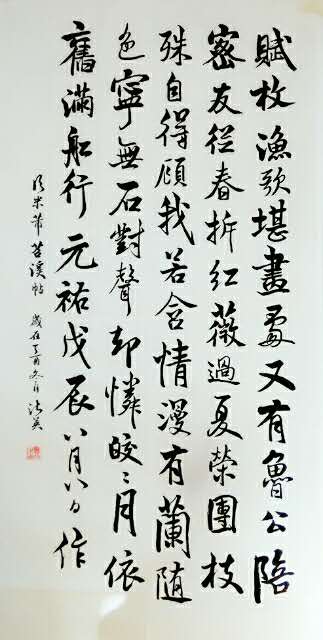 賦枚漁歌堪畫處又有魯公陪
密友從春拆紅薇過夏榮團枝
殊自得顧我若含情漫有蘭隨
色寧無石對聲却憐皎〻月依
舊滿船行元祐戊辰八月八日作
米芾苕溪帖 歲在丁酉冬月